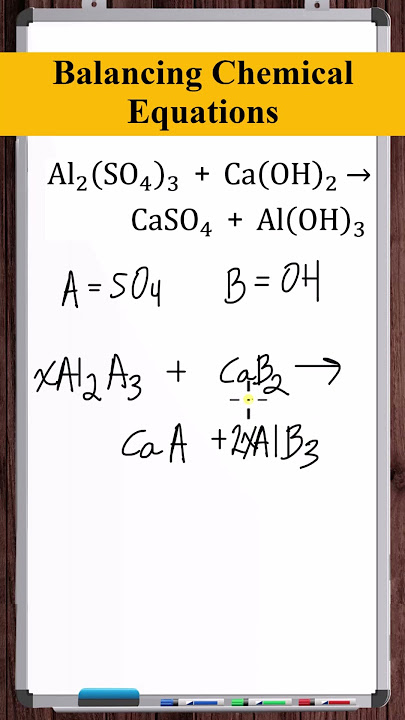 Balancing Chemical
Equations
Al₂(SO₄)₃ + Ca(OH)₂ →
CaSO₄ + Al(OH)₃
A = SO₄ B = OH
xAl₂A₃ + CaB₂ →
CaA + 2xAlB₃